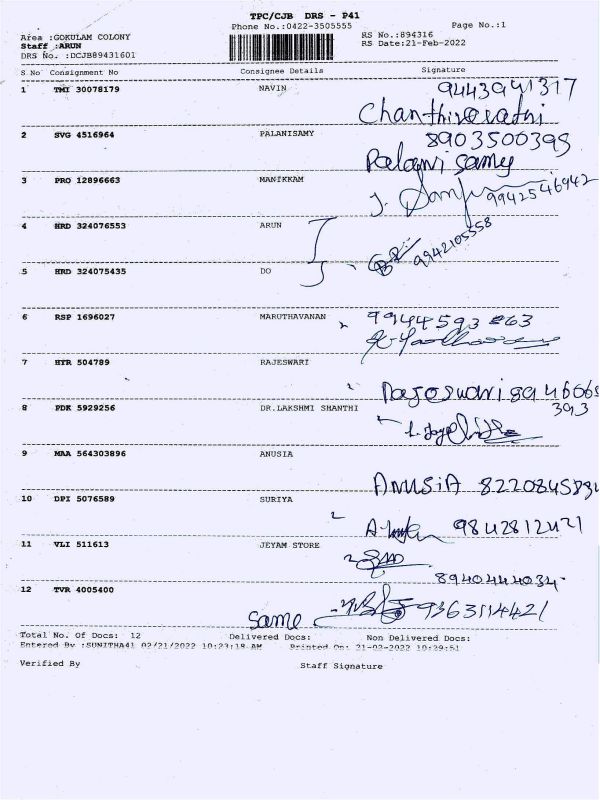 TPC/CJB DRS - P41
Phone No.:0422-3505555 Page No.:1
Area :GOKULAM COLONY RS No.:894316
Staff :ARUN RS Date:21-Feb-2022
DRS No. :DCJB89431601
S.No Consignment No Consignee Details Signature
1 TMI 30078179 NAVIN 9443941317
2 SVG 4516964 PALANISAMY 8903500395
Palani samy
3 PRO 12896663 MANIKKAM 9942546942
4 HRD 324076553 ARUN
9942105558
5 HRD 324075435 DO
6 RSP 1696027 MARUTHAVANAN
7 HTR 504789 RAJESWARI
8 PDK 5929256 DR.LAKSHMI SHANTHI 393
9 MAA 564303896 ANUSIA
ANUSIA
10 DPI 5076589 SURIYA
9842812421
11 VLI 511613 JEYAM STORE
8940444034
12 TVR 4005400
Same
Total No. Of Docs: 12 Delivered Docs: Non Delivered Docs:
Entered By :SUNITHA41 02/21/2022 10:23:18 AM Printed On: 21-02-2022 10:29:51
Verified By Staff Signature